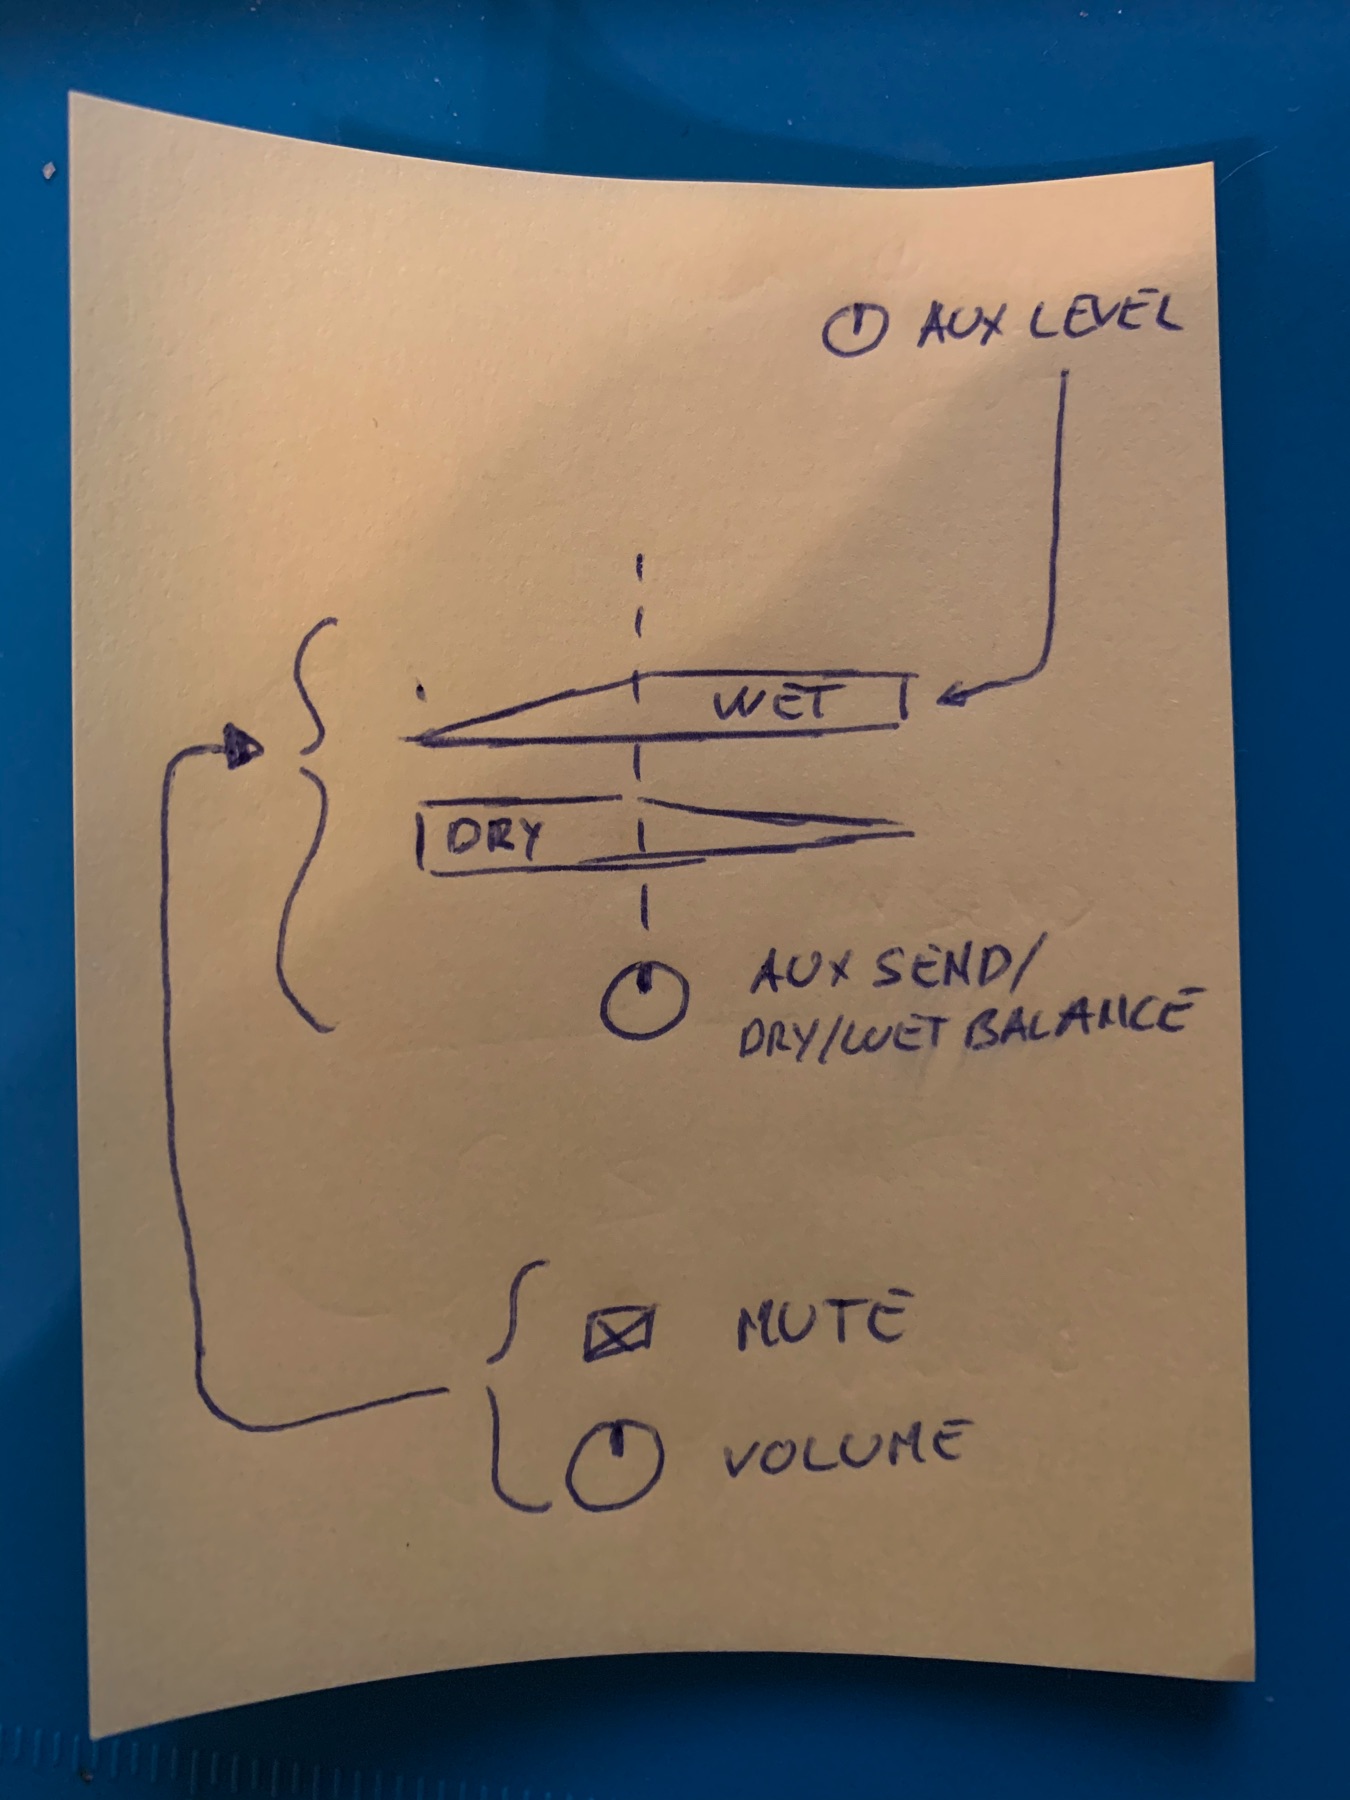 AUX LEVEL
WET
DRY
AUX SEND/
DRY/WET BALANCE
MUTE
VOLUME